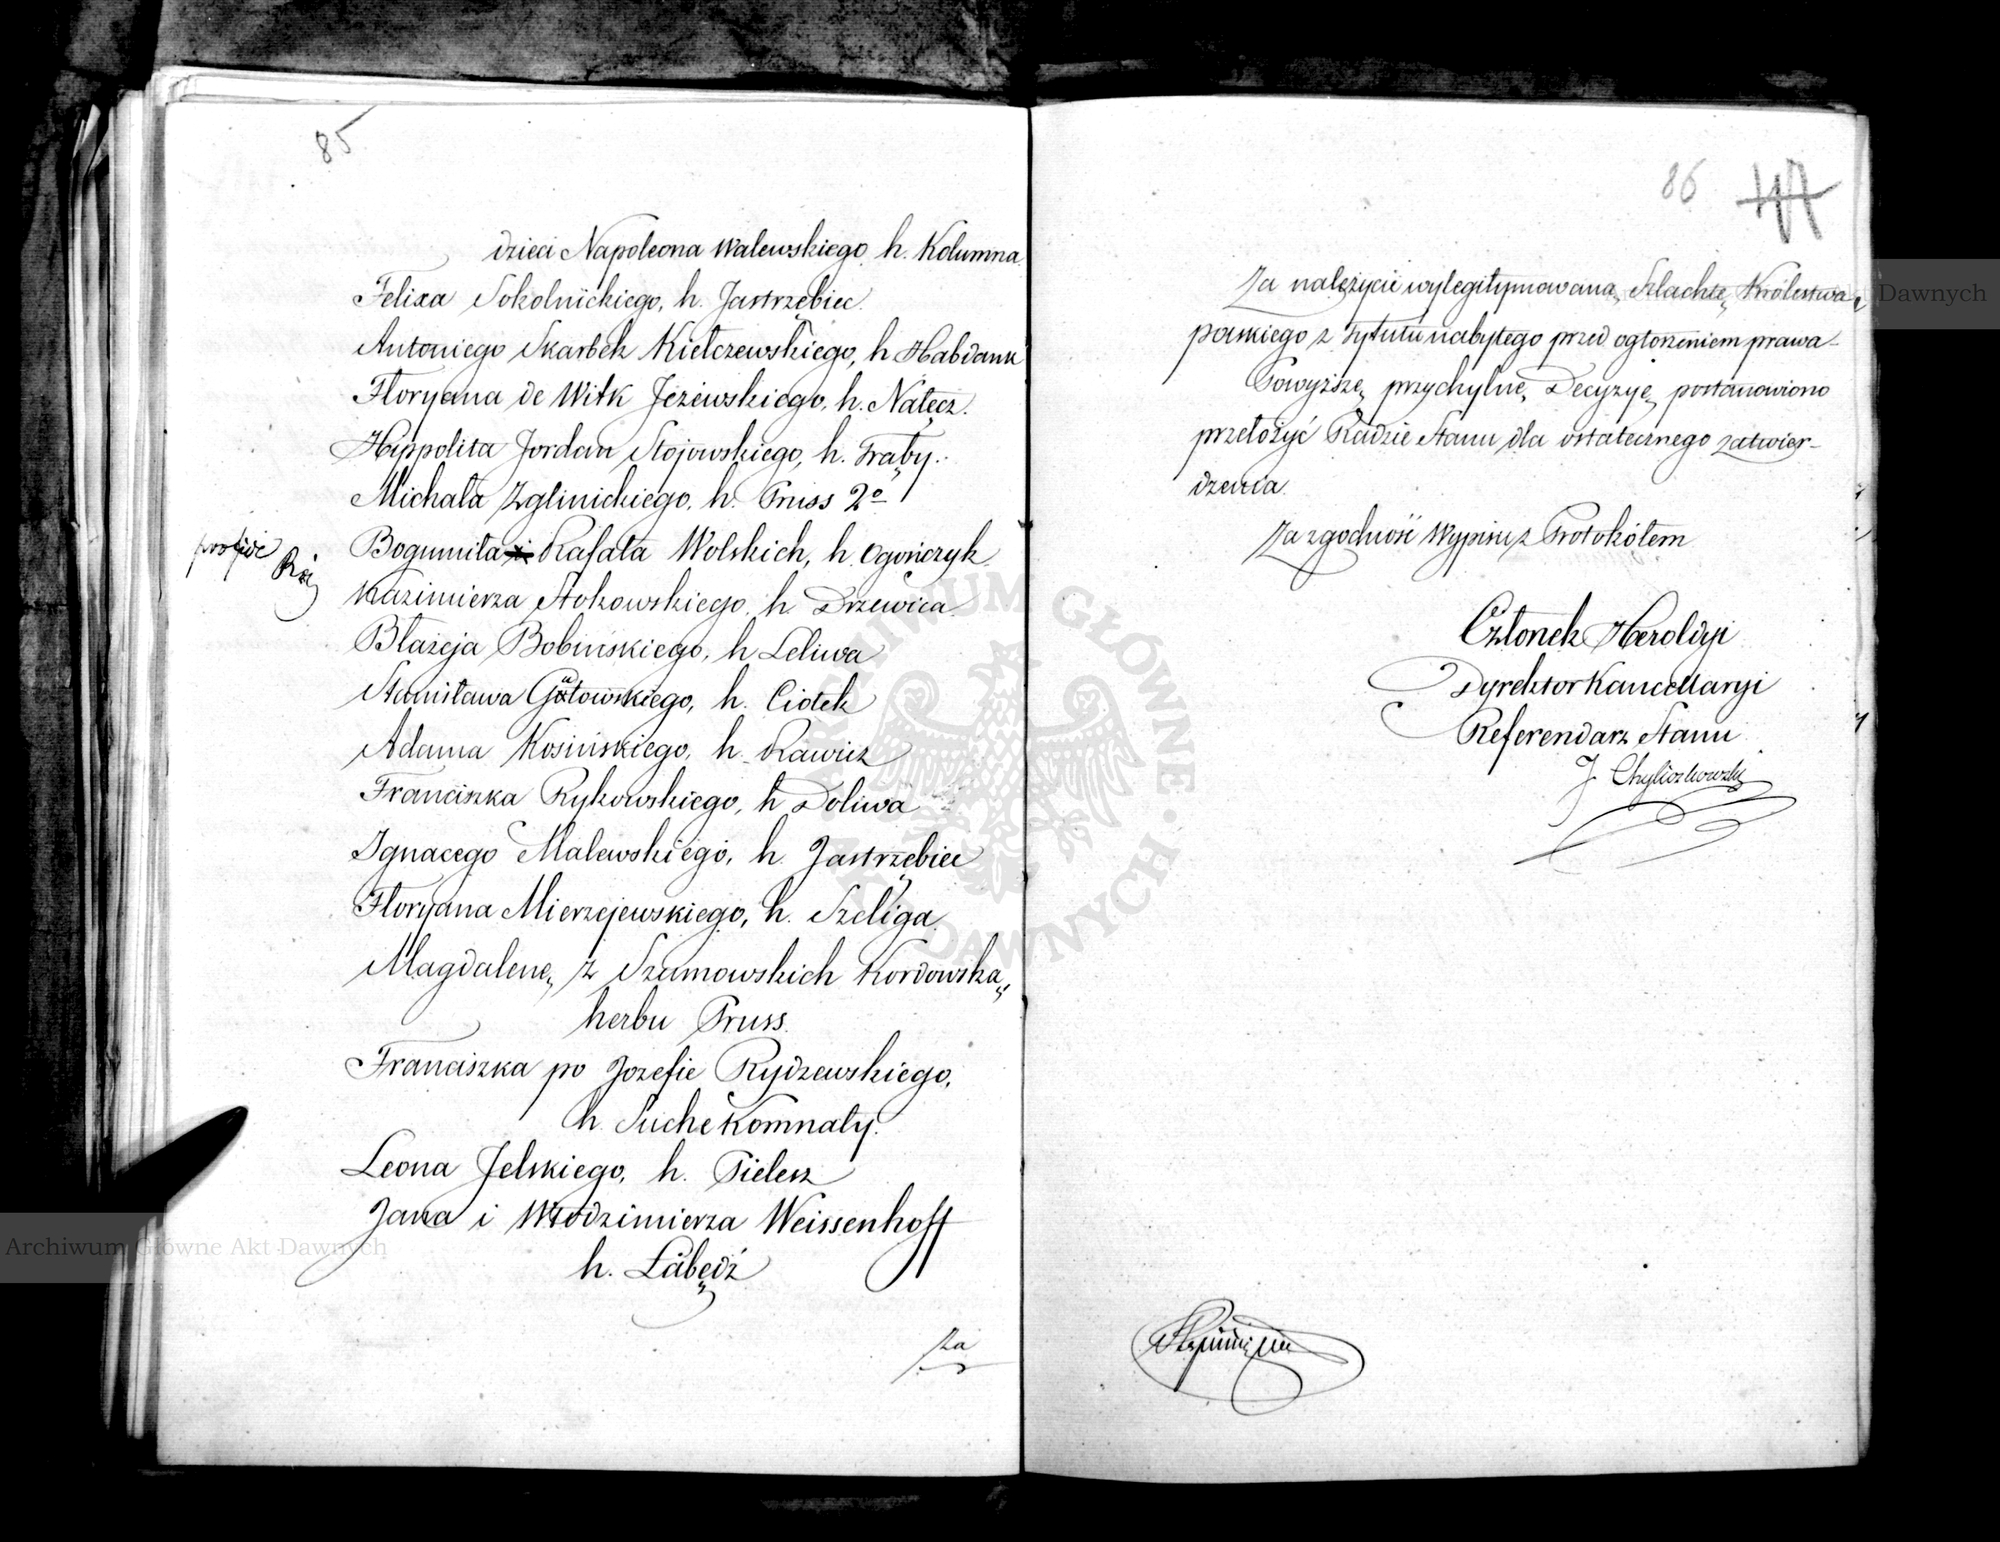 85
dzieci Napoleona Walewskiego h. Kolumna
Felixa Sokolnickiego, h. Jastrzębiec.
Antoniego Skarbek Kiełczewskiego, h Habdank
Floryana de Witk Jeżewskiego, h. Nałęcz.
Hippolita Jordan Stojowskiego, h. Trąby.
Michała Zglinickiego, h. Pruss 2º
Bogumiła i Rafała Wolskich, h. Ogończyk
Kazimierza Stokowskiego h Drzewica
Błażeja Bobińskiego, h Leliwa
Stanisława Gutowskiego, h. Ciołek
Adama Kosińskiego, h. Rawicz
Franciszka Rykowskiego, h Doliwa
Ignacego Malewskiego, h. Jastrzębiec
Floryana Mierzejewskiego, h. Szeliga
Magdalenę z Szumowskich Kordowską,
herbu Pruss.
Franciszka po Jozefie Rydzewskiego,
h. Suche Komnaty.
Leona Jelskiego, h. Pielesz
Jana i Włodzimierza Weissenhoff
h. Łabędź
za
86
Za należycie wylegitymowaną Szlachtę Królestwa
polskiego z tytułu nabytego przed ogłoszeniem prawa
Powyższę przychylnę Decyzyę postanowiono
przełożyć Radzie Stanu dla ostatecznego zatwier-
dzenia
Za zgodność Wypisu z Protokółem
Członek Heroldyi
Dyrektor Kancellaryi
Referendarz Stanu
J Chyliczkowski
ARCHIWUM GŁÓWNE AKT DAWNYCH
Archiwum Główne Akt Dawnych
Akt Dawnych